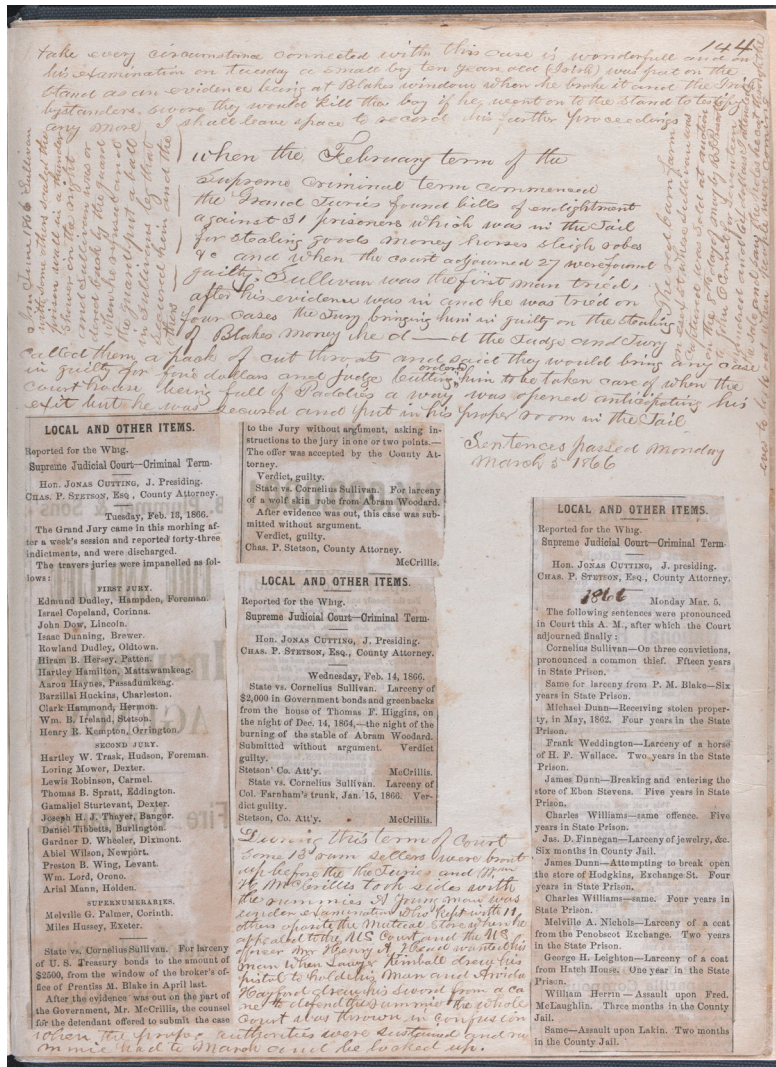 144
take every circumstance connected with this case is wonderfull and on
his examination on tuesday a small boy ten year old was put on the
stand as an evidence being at Blakes window when he broke it and the
bystanders swore they would kill the boy if he went on to the stand to testify
any more I shall leave space to record his further proceedings
In June 1866 Sullivan
with some others scaled the
prison wall in a thunder
shower in the night
and Sullivan was
back by the guard
when he refused and
the guard put a ball
in Sullivans leg that
secured him and the
others
when the February term of the
Supreme Criminal term commenced
the Grand Juries found bills of
against 31 prisoners which was in the Jail
for stealing goods money horses sleigh robes
&c and when the court adjourned 27 were found
guilty. Sullivan was the first man tried,
after his evidence was in and he was tried on
four cases the Jury bringing him in guilty on the stealing
of Blakes money he d—d the Judge and Jury
called them a pack of cut throats and said they would bring any case
in guilty for five dollars and Judge Cutting ordered him to be taken care of when the
Court house being full of Paddies a way was opened anticipating his
exit but he was secured and put in his proper room in the Jail
Sentences passed Monday
March 5 1866
LOCAL AND OTHER ITEMS.
Reported for the Whig.
Supreme Judicial Court—Criminal Term.
Hon. JONAS CUTTING, J. Presiding.
CHAS. P. STETSON, ESQ, County Attorney.
Tuesday, Feb. 13, 1866.
The Grand Jury came in this morning af-
ter a week's session and reported forty-three
indictments, and were discharged.
The travers juries were impannelled as fol-
lows:
FIRST JURY.
Edmund Dudley, Hampden, Foreman.
Israel Copeland, Corinna.
John Dow, Lincoln.
Isaac Dunning, Brewer.
Rowland Dudley, Oldtown.
Hiram B. Hersey, Patten.
Hartley Hamilton, Mattawamkeag.
Aaron Haynes, Passadumkeag.
Barzillai Huckins, Charleston.
Clark Hammond, Hermon.
Wm. B. Ireland, Stetson.
Henry R. Kempton, Orrington.
SECOND JURY.
Hartley W. Trask, Hudson, Foreman.
Loring Mower, Dexter.
Lewis Robinson, Carmel.
Thomas B. Spratt, Eddington.
Gamaliel Sturtevant, Dexter.
Joseph H. J. Thayer, Bangor.
Daniel Tibbetts, Burlington.
Gardner D. Wheeler, Dixmont.
Abiel Wilson, Newport.
Preston B. Wing, Levant.
Wm. Lord, Orono.
Arial Mann, Holden.
SUPERNUMERARIES.
Melville G. Palmer, Corinth.
Miles Hussey, Exeter.
State vs. Cornelius Sullivan. For larceny
of U. S. Treasury bonds to the amount of
$2500, from the window of the broker's of-
fice of Prentiss M. Blake in April last.
After the evidence was out on the part of
the Government, Mr. McCrillis, the counsel
for the defendant offered to submit the case
to the Jury without argument, asking in-
structions to the jury in one or two points.—
The offer was accepted by the County At-
torney.
Verdict, guilty.
State vs. Cornelius Sullivan. For larceny
of a wolf skin robe from Abram Woodard.
After evidence was out, this case was sub-
mitted without argument.
Verdict, guilty.
Chas. P. Stetson, County Attorney.
McCrillis.
LOCAL AND OTHER ITEMS.
Reported for the Whig.
Supreme Judicial Court—Criminal Term.
Hon. JONAS CUTTING, J. Presiding.
CHAS. P. STETSON, ESQ., County Attorney.
Wednesday, Feb. 14, 1866.
State vs. Cornelius Sullivan. Larceny of
$2,000 in Government bonds and greenbacks
from the house of Thomas F. Higgins, on
the night of Dec. 14, 1864,—the night of the
burning of the stable of Abram Woodard.
Submitted without argument. Verdict
guilty.
Stetson' Co. Att'y. McCrillis.
State vs. Cornelius Sullivan. Larceny of
Col. Farnham's trunk, Jan. 15, 1866. Ver-
dict guilty.
Stetson, Co. Att'y. McCrillis.
During this term of Court
some 13 rum sellers were brout
up before the Juries and Wm
H McCrillis took sides with
the rummies A young man was
under examination who kept with 11
others oposite the Mutual Store when he
appealed to the US Court and the US
officer Mr Henry wanted his
man when Lawyer Kimball drew his
pistol to hold his man and
Hayford drew his sword from a ca
ne to defend the rummie the whole
Court was thrown in confusion
when the proper authorities were sustained and ru
mmie had to March and be locked up.
LOCAL AND OTHER ITEMS.
Reported for the Whig.
Supreme Judicial Court—Criminal Term.
Hon. JONAS CUTTING, J. presiding.
CHAS. P. STETSON, ESQ., County Attorney.
1866 Monday Mar. 5.
The following sentences were pronounced
in Court this A. M., after which the Court
adjourned finally:
Cornelius Sullivan—On three convictions,
pronounced a common thief. Fifteen years
in State Prison.
Same for larceny from P. M. Blake—Six
years in State Prison.
Michael Dunn—Receiving stolen proper-
ty, in May, 1862. Four years in the State
Prison.
Frank Weddington—Larceny of a horse
of H. F. Wallace. Two years in the State
Prison.
James Dunn—Breaking and entering the
store of Eben Stevens. Five years in State
Prison.
Charles Williams—same offence. Five
years in State Prison.
Jas. D. Finnegan—Larceny of jewelry, &c.
Six months in County Jail.
James Dunn—Attempting to break open
the store of Hodgkins, Exchange St. Four
years in State Prison.
Charles Williams—same. Four years in
State Prison.
Melville A. Nichols—Larceny of a coat
from the Penobscot Exchange. Two years
in the State Prison.
George H. Leighton—Larceny of a coat
from Hatch House. One year in the State
Prison.
William Herrin—Assault upon Fred.
McLaughlin. Three months in the County
Jail.
Same—Assault upon Lakin. Two months
in the County Jail.